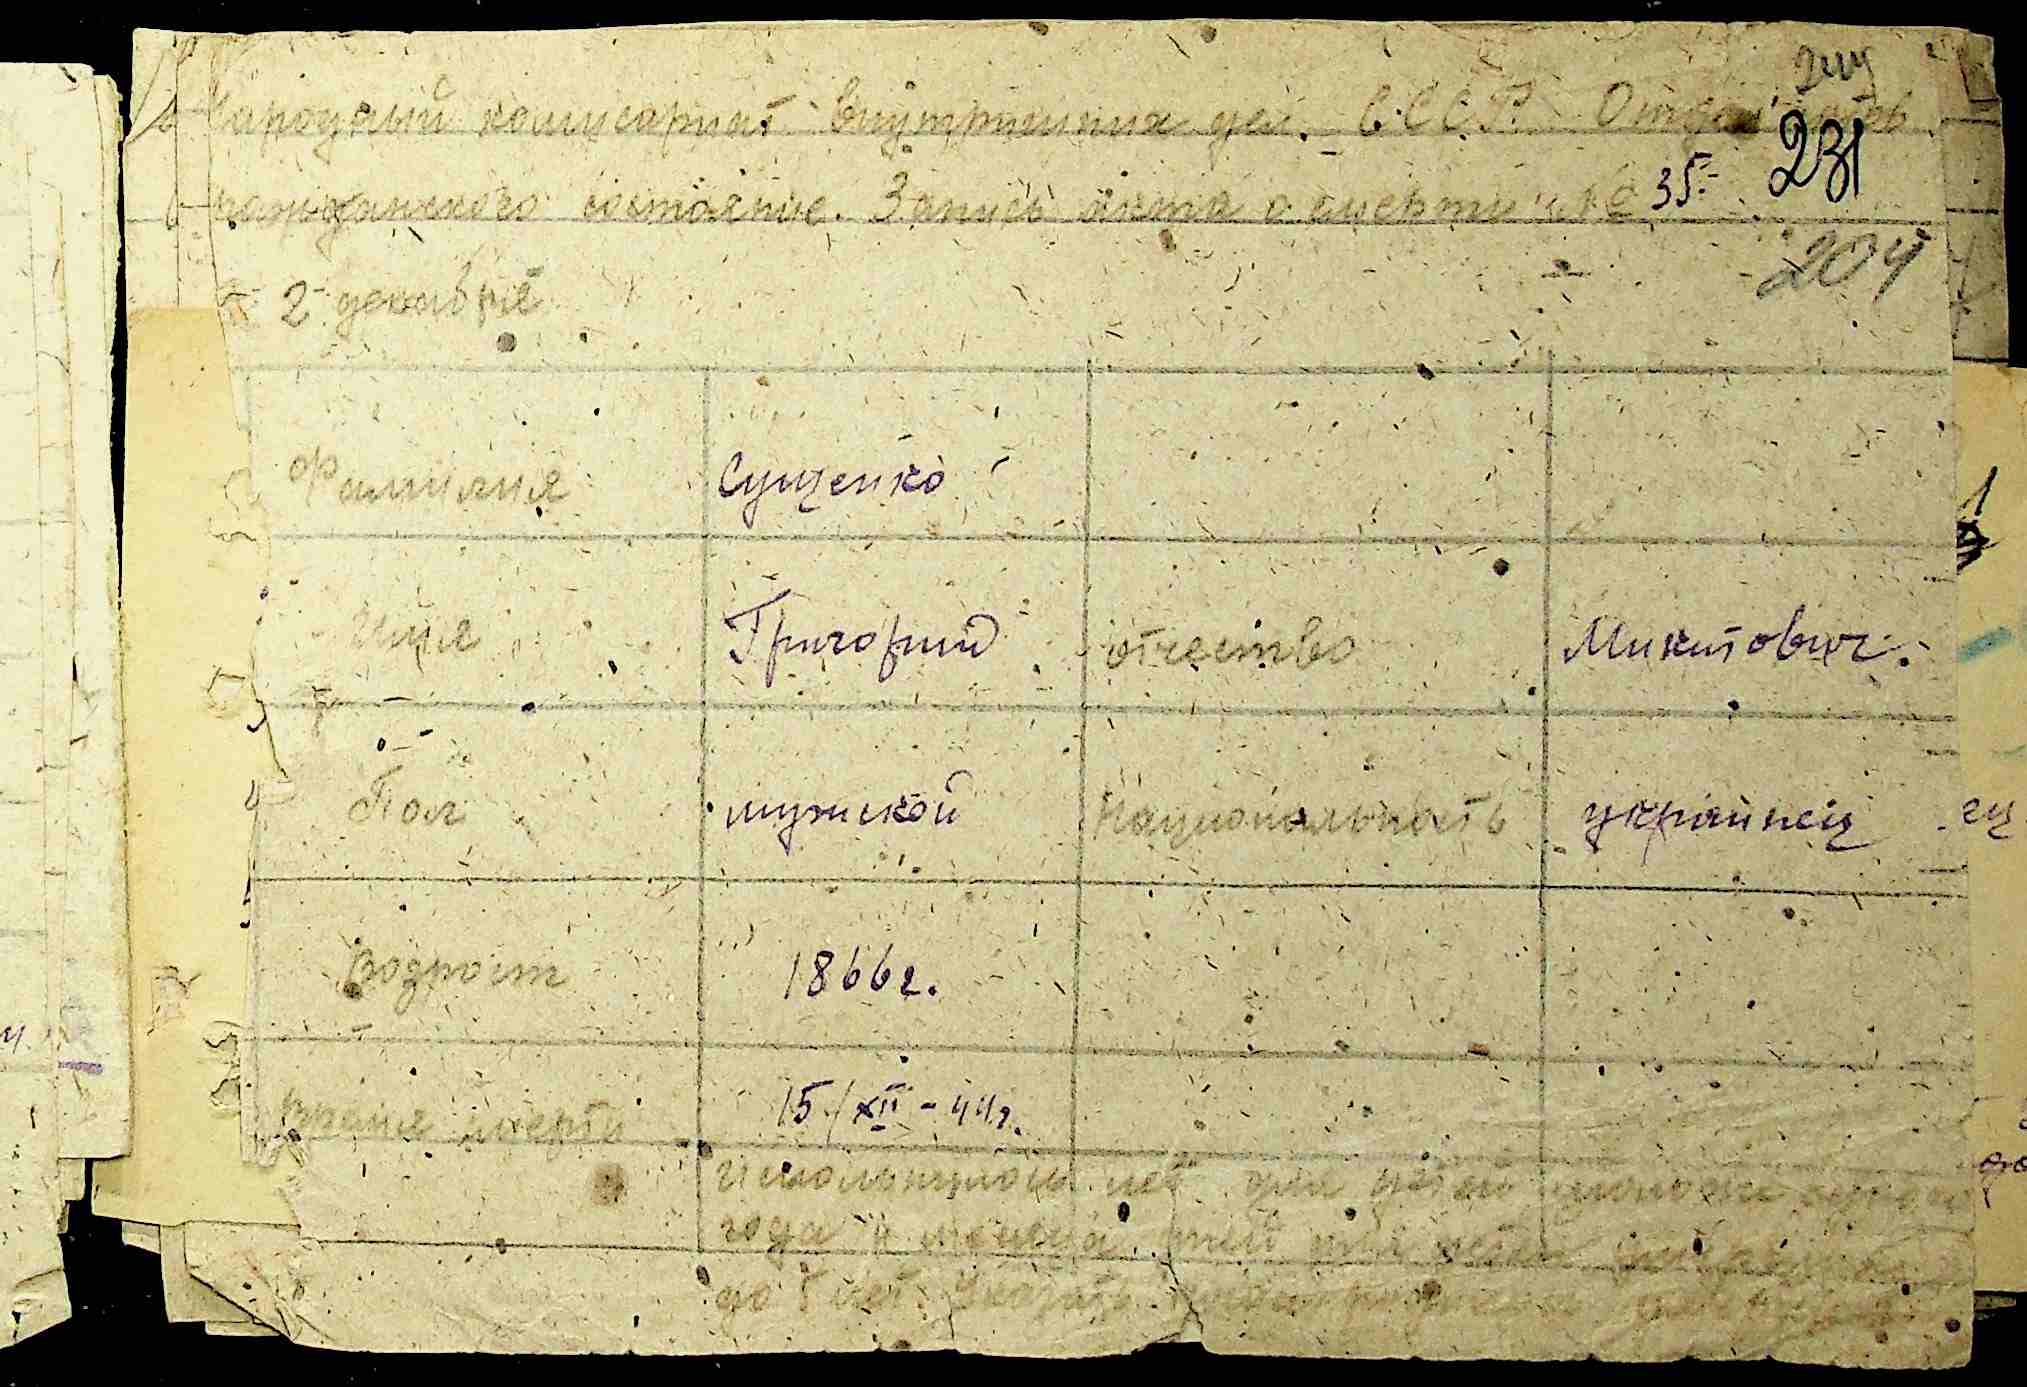 народный комисариат внутрених дел. С.С.С.Р. Отдел актов
гражданского состояние. Запись акта о смерти № 35.
231
204
2 декабря
Фамилия Сущенко
Имя Григорий отчество Микитович.
Пол мужской Национальность украинец
Возраст 1866г.
Время смерти 15/XII-44г.
лет для детей
года и месяца
до 5 лет. Указать